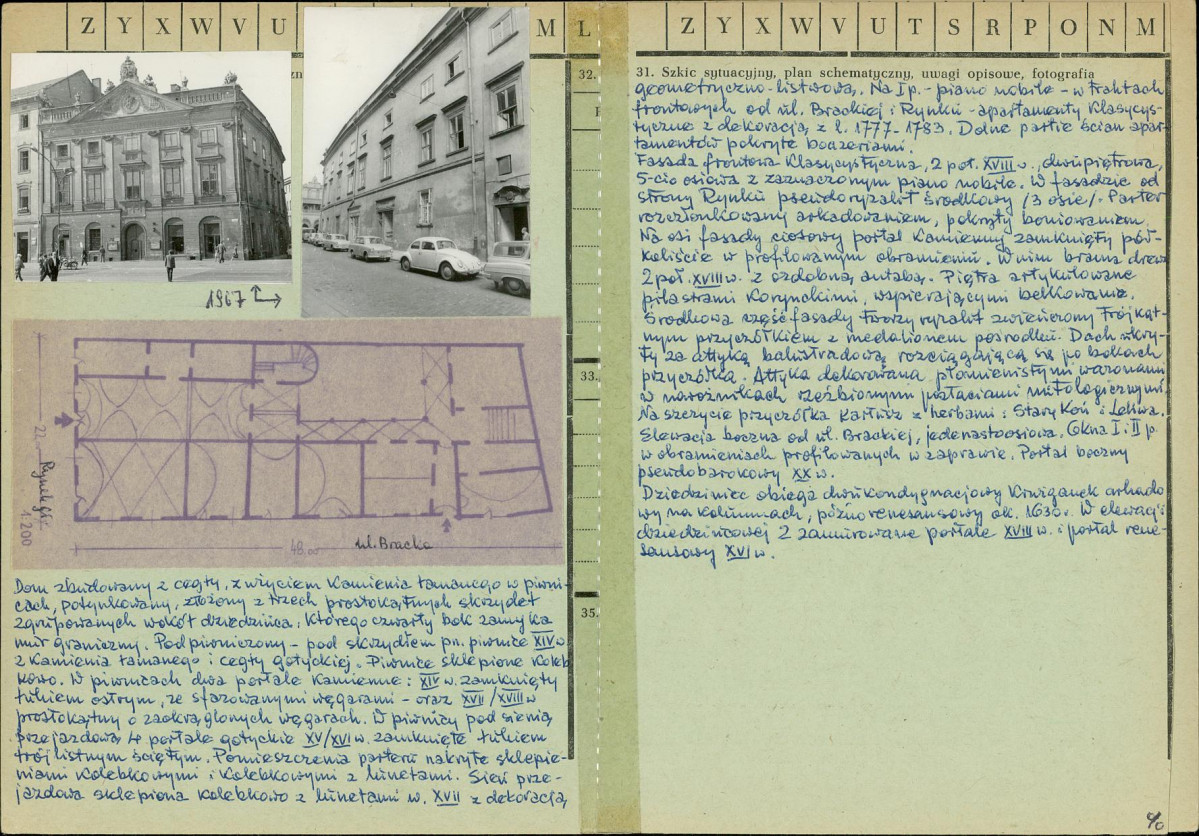 Z Y X W V U
M L
Z Y X W V U T S R P O N M
zn
32.
33.
35.
1967
22.
Rynek Gł.
1:200
48.00
ul. Bracka
Dom zbudowany z cegły, z użyciem kamienia łamanego w piwni-
cach, potynkowany, złożony z trzech prostokątnych skrzydeł
zgrupowanych wokół dziedzińca, którego czwarty bok zamyka
mur graniczny. Podpiwniczony - pod skrzydłem pn. piwnice XIV w.
z kamienia łamanego i cegły gotyckiej. Piwnice sklepione koleb
kowo. W piwnicach dwa portale kamienne: XIV w. zamknięty
łukiem ostrym, ze sfazowanymi węgarami - oraz XVII/XVIII w
prostokątny o zaokrąglonych węgarach. W piwnicy pod sienią
przejazdową 4 portale gotyckie XV/XVI w. zamknięte łukiem
trójlistnym ściętym. Pomieszczenia parteru nakryte sklepie-
niami kolebkowymi i kolebkowymi z lunetami. Sień prze-
jazdowa sklepiona kolebkowo z lunetami w. XVII z dekoracją
31. Szkic sytuacyjny, plan schematyczny, uwagi opisowe, fotografia
geometryczno-listwową. Na I p. - piano nobile - w traktach
frontowych od ul. Brackiej i Rynku - apartamenty klasycys-
tyczne z dekoracją z l. 1777-1783. Dolne partie ścian apar-
tamentów pokryte boazeriami.
Fasada frontowa klasycystyczna, 2 poł. XVIII w., dwupiętrowa,
5-cio osiowa z zaznaczonym piano nobile. W fasadzie od
strony Rynku pseudoryzalit środkowy /3 osie/. Parter
rozczłonkowany arkadowaniem, pokryty boniowaniem.
Na osi fasady ciosowy portal kamienny zamknięty pół-
koliście w profilowanym obramieniu. W nim brama drewn
2 poł. XVIII w. z ozdobną antabą. Piętra artykułowane
pilastrami korynckimi, wspierającymi belkowanie.
Środkową część fasady tworzy ryzalit zwieńczony trójkąt-
nym przyczółkiem z medalionem pośrodku. Dach ukry-
ty za attyką balustradową, rozciągającą się po bokach
przyczółka. Attyka dekorowana płomienistymi wazonami
w narożnikach rzeźbionymi postaciami mitologicznymi
Na szczycie przyczółka kartusz z herbami: Stary Koń i Leliwa.
Elewacja boczna od ul. Brackiej, jedenastoosiowa. Okna I i II p.
w obramieniach profilowanych w zaprawie. Portal boczny
pseudobarokowy XX w.
Dziedziniec obiega dwukondygnacjowy krużganek arkado
wy na kolumnach, późnorenesansowy ok. 1630 r. W elewacji
dziedzińcowej 2 zamurowane portale XVIII w. i portal rene-
sansowy XVI w.